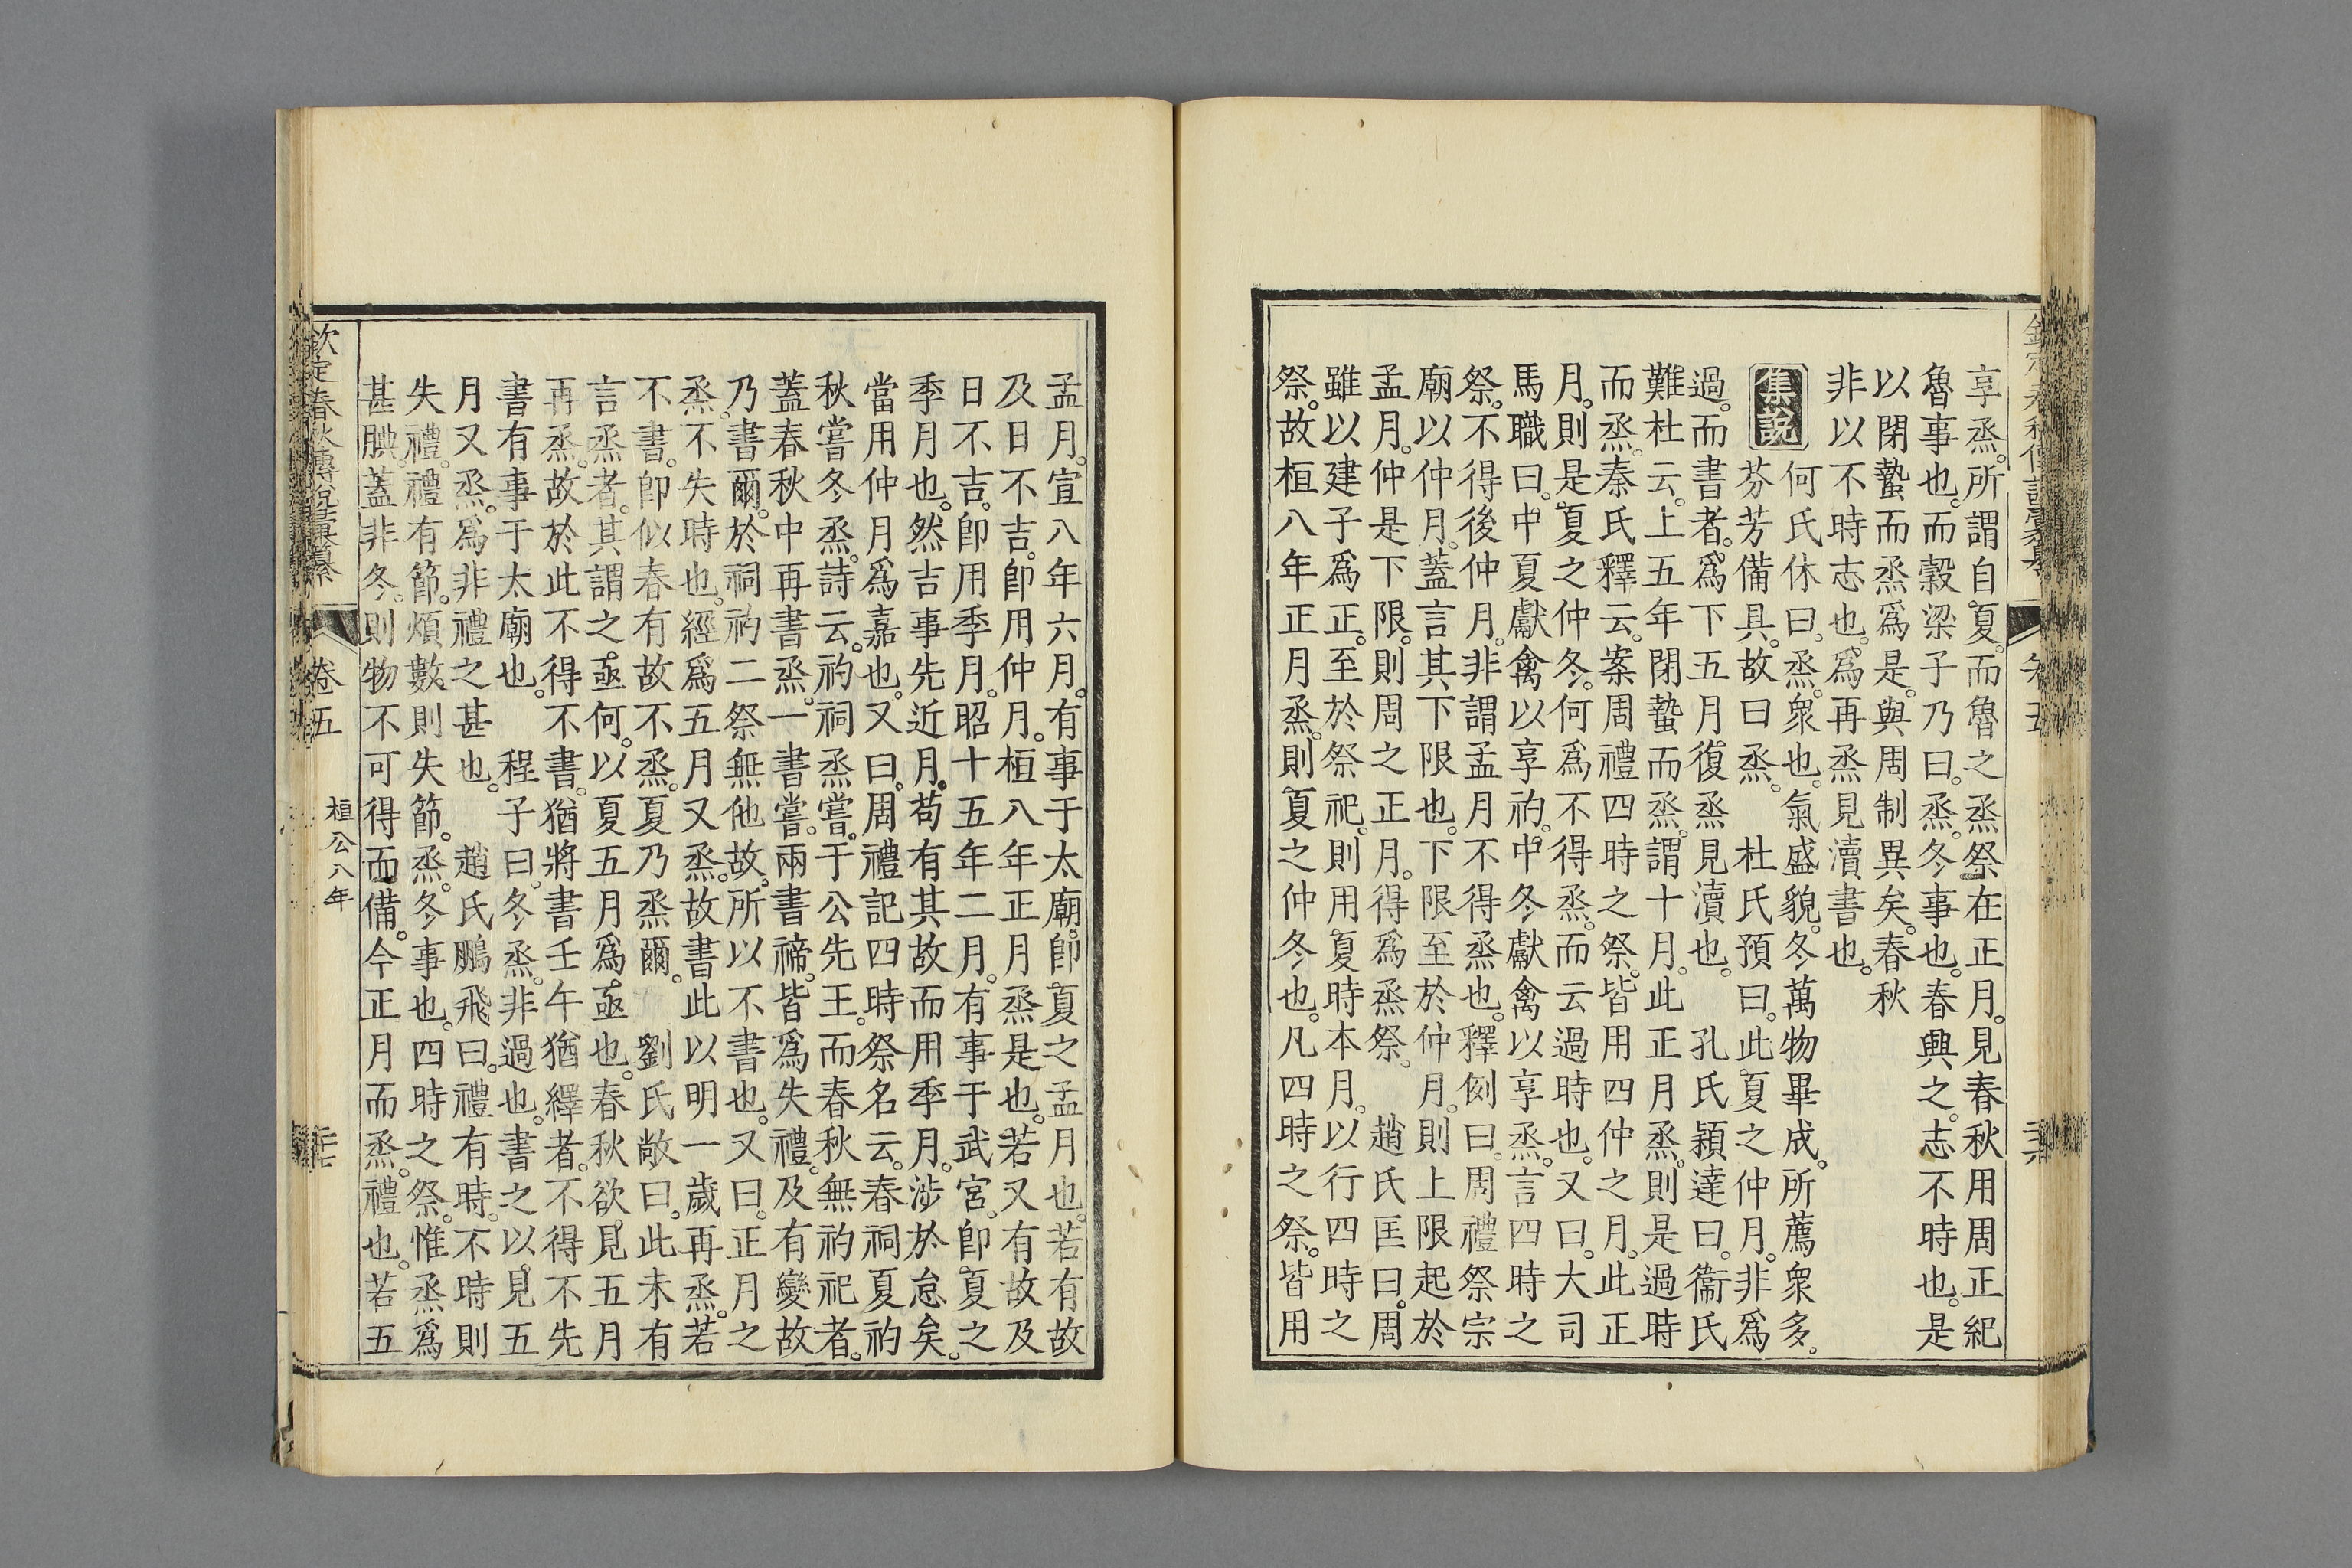 享烝所謂自夏而魯之烝祭在正月見春秋用周正紀
魯事也而穀梁子乃曰烝冬事也春興之志不時也是
以閉蟄而烝爲是與周制異矣春秋
非以不時志也爲再烝見瀆書也
集說
何氏休曰烝衆也氣盛貌冬萬物畢成所薦衆多
芬芳備具故曰烝　杜氏預曰此夏之仲月非爲
過而書者爲下五月復烝見瀆也　孔氏穎達曰衞氏
難杜云上五年閉蟄而烝謂十月此正月烝則是過時
而烝秦氏釋云案周禮四時之祭皆用四仲之月此正
月則是夏之仲冬何爲不得烝而云過時也又曰大司
馬職曰中夏獻禽以享礿中冬獻禽以享烝言四時之
祭不得後仲月非謂孟月不得烝也釋例曰周禮祭宗
廟以仲月蓋言其下限也下限至於仲月則上限起於
孟月仲是下限則周之正月得爲烝祭　趙氏匡曰周
雖以建子爲正至於祭祀則用夏時本月以行四時之
祭故桓八年正月烝則夏之仲冬也凡四時之祭皆用
孟月宣八年六月有事于太廟卽夏之孟月也若有故
及日不吉卽用仲月桓八年正月烝是也若又有故及
日不吉卽用季月昭十五年二月有事于武宮卽夏之
季月也然吉事先近月苟有其故而用季月涉於怠矣
當用仲月爲嘉也又曰周禮記四時祭名云春祠夏礿
秋嘗冬烝詩云礿祠烝嘗于公先王而春秋無礿祀者
蓋春秋中再書烝一書嘗兩書禘皆爲失禮及有變故
乃書爾於祠礿二祭無他故所以不書也又曰正月之
烝不失時也經爲五月又烝故書此以明一歲再烝若
不書卽似春有故不烝夏乃烝爾　劉氏敞曰此未有
言烝者其謂之亟何以夏五月爲亟也春秋欲見五月
再烝故於此不得不書猶將書壬午猶繹者不得不先
書有事于太廟也　程子曰冬烝非過也書之以見五
月又烝爲非禮之甚也　趙氏鵬飛曰禮有時不時則
失禮禮有節煩數則失節烝冬事也四時之祭惟烝爲
甚腆蓋非冬則物不可得而備今正月而烝禮也若五
欽定春秋傳說彙纂　卷五　桓公八年